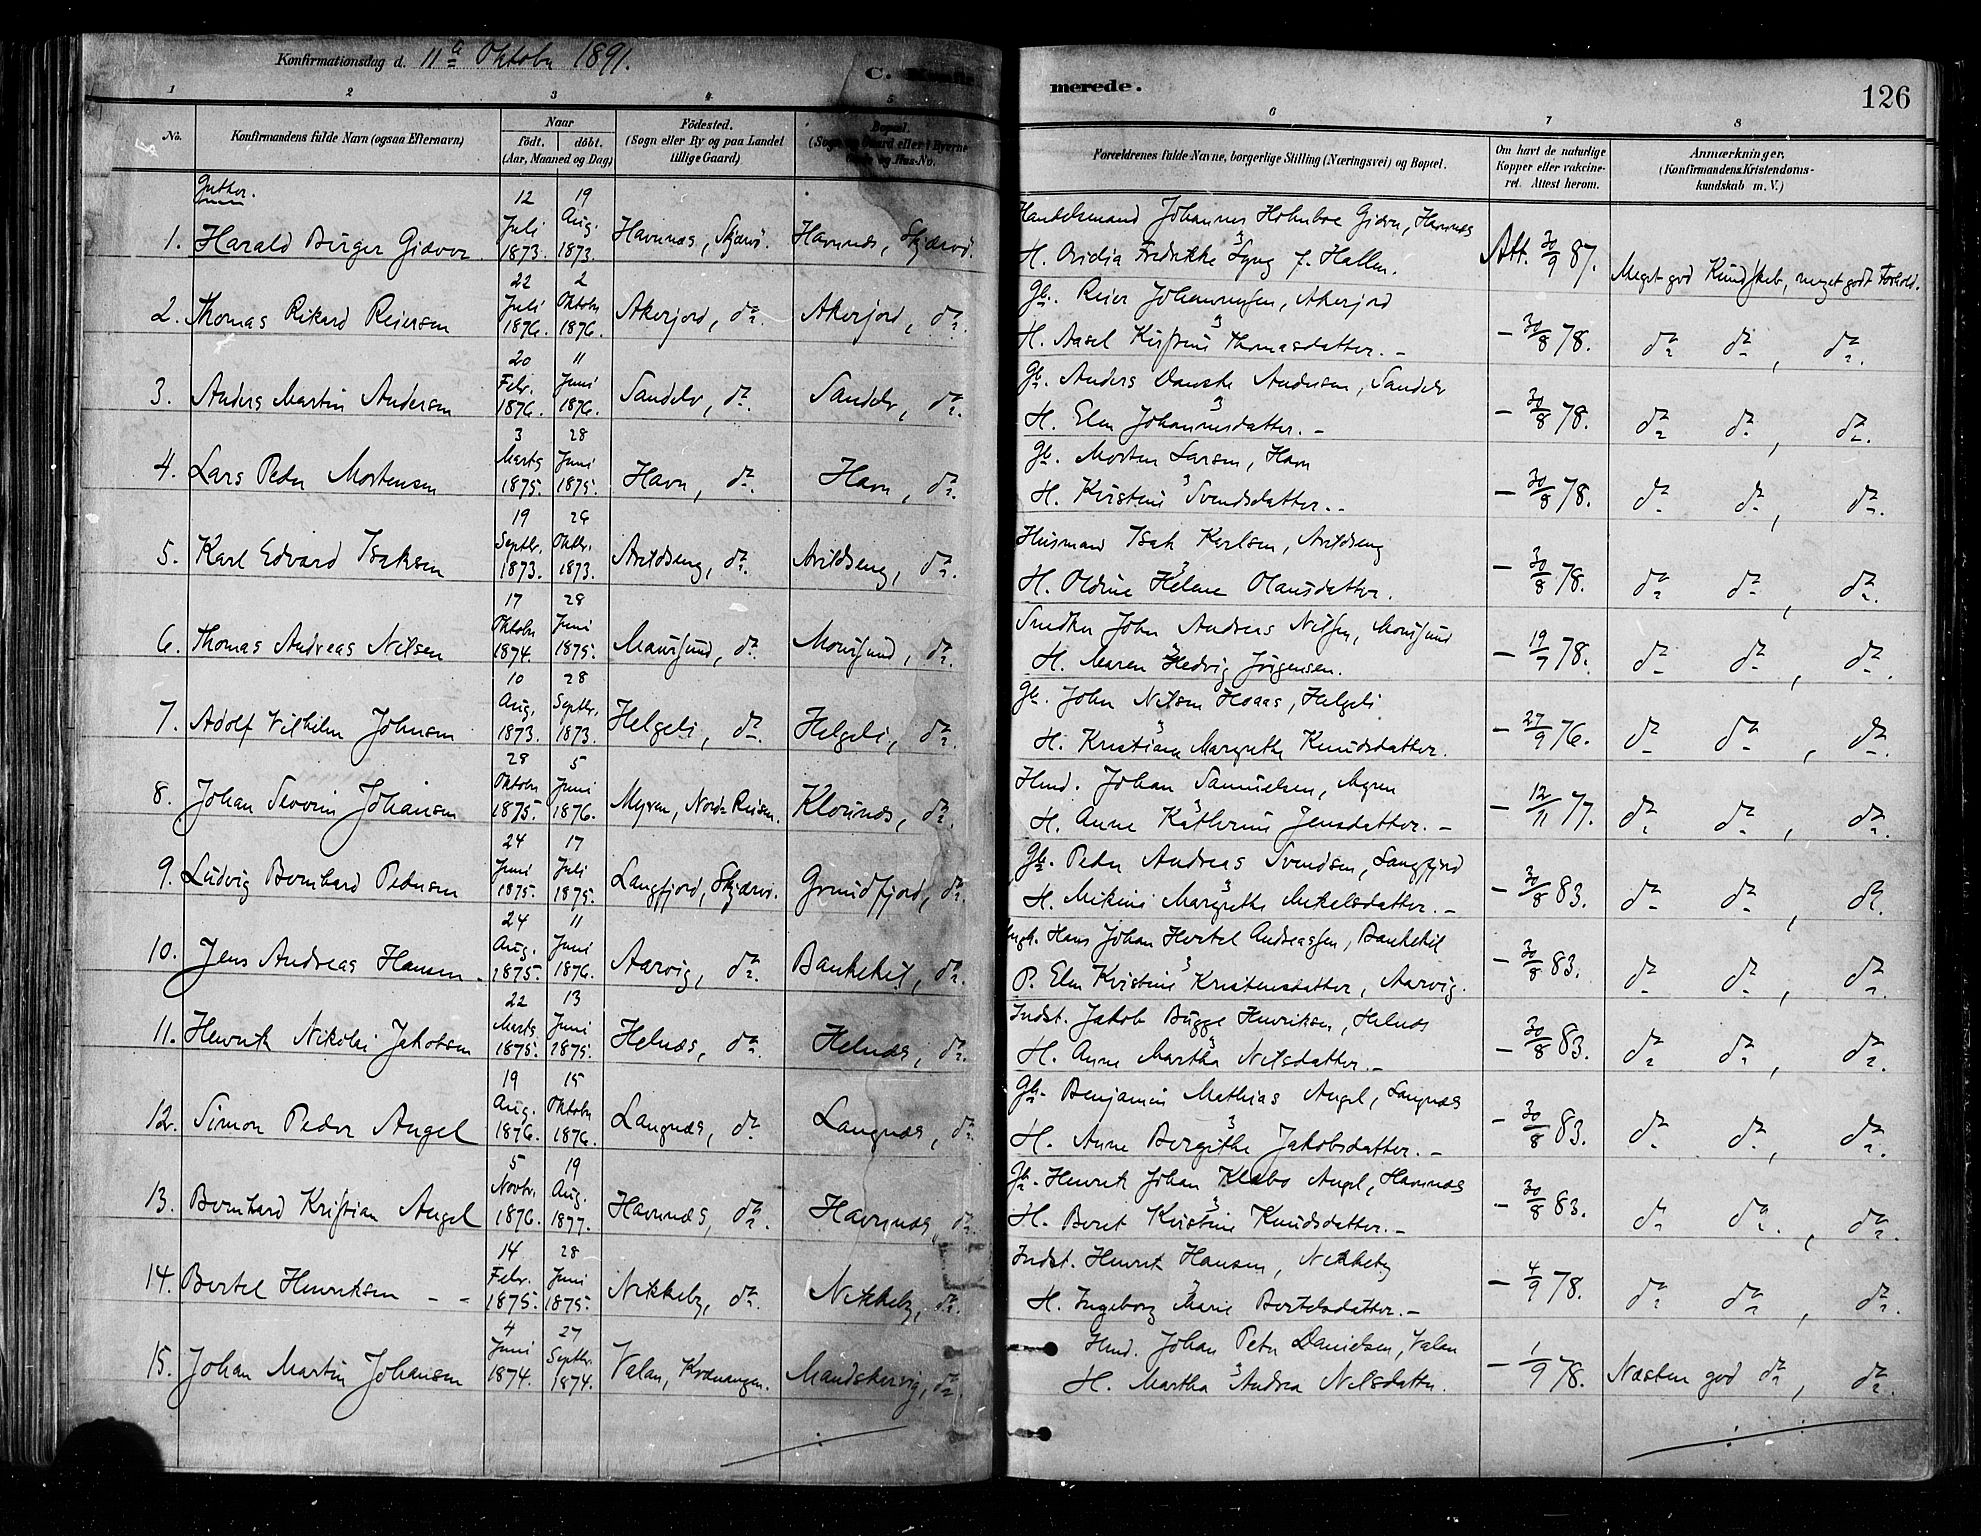 Konfirmationsdag d. 11te Oktober 1891.
C. Konfir
merede.
126
1 2 3 4 5 6 7 8
No.
Konfirmandens fulde Navn (ogsaa Efternavn)
Naar
födt. döbt.
(Aar, Maaned og Dag)
Födested.
(Sogn eller By og paa Landet
tillige Gaard)
Bopæl.
Forældrenes fulde Navne, borgerlige Stilling (Næringsvei) og Bopæl.
Om havt de naturlige
Kopper eller vakcine-
ret. Attest herom.
Anmærkninger.
(Konfirmandens Kristendoms-
kundskab m. V.)
Gutter.
1. Harald Birger Giæver 12 Juli 1873. 19 Aug. 1873. Havnnæs, Skjærvö. Havnnæs, Skjærvö.
Handelsmand Johannes Holmboe Giæver, Havnnæs
H. Ovidia Fredrikke Lyng f. Hallen.
Att. 30/9 87. Meget god Kundskab, meget godt Forhold.
2. Thomas Rikard Reiersen 22 Juli 1876. 2 Oktober 1876. Akerjord, do. Akerjord, do.
Gb. Reier Johannesen, Akerjord
H. Aasel Kirstine Thomasdatter. –
– 30/8 78. do do, do.
3. Anders Martin Andersen 20 Febr. 1876. 11 Juni 1876. Sandelv, do. Sandelv, do.
Gb. Anders Danske Andersen, Sandelv
H. Elen Johannesdatter. –
– 30/8 78. do do, do.
4. Lars Peder Mortensen 3 Marts 1875. 28 Juni 1875. Havn, do. Havn, do.
Gb. Morten Larsen, Havn
H. Kirstine Svendsdatter. –
– 30/8 78. do do, do.
5. Karl Edvard Isaksen 19 Septbr. 1873. 26 Oktbr. 1873. Arildseng, do. Arildseng, do.
Husmand Isak Karlsen, Arildseng
H. Oldine Helene Olausdatter.
– 30/8 78. do do, do.
6. Thomas Andreas Nilsen 17 Oktober 1874. 28 Juni 1875. Maursund, do. Maursund, do.
Snedker John Andreas Nilsen, Maursund
H. Maren Hedvig Jörgensen.
– 19/7 78. do do, do
7. Adolf Vilhelm Johnsen 10 Aug. 1873. 28 Septbr. 1873. Helgeli, do. Helgeli, do.
Gb. John Nilsen Hoaas, Helgeli
H. Kristiane Margrethe Knudsdatter.
– 27/9 76. do do, do.
8. Johan Severin Johansen 28 Oktober 1875. 5 Juni 1876. Myren, Nord-Reisen. Klovnæs, do.
Hmd. Johan Samuelsen, Myren
H. Anne Katherine Jensdatter. –
– 12/11 77. do do, do.
9. Ludvig Bernhard Pedersen 24 Juni 1875. 17 Juli 1875. Langfjord, Skjærvö. Grundfjord, do.
Gb. Peder Andreas Svendsen, Langfjord
H. Mikine Margrethe Mikelsdatter. –
– 30/8 83. do do, do.
10. Jens Andreas Hansen. 24 Aug. 1875. 11 Juni 1876. Aarvig, do. Bankekil, do.
Ungk. Hans Johan Hertel Andreassen, Bankekil
P. Elen Kristine Kristensdatter, Aarvig.
– 30/8 83. do do, do.
11. Henrik Nikolai Jakobsen 22 Marts 1875. 13 Juni 1875. Helnæs, do. Helnæs, do.
Indst. Jakob Bugge Henriksen, Helnæs
H. Anne Martha Nilsdatter. –
– 30/8 83. do do, do.
12. Simon Peder Angel 19 Aug. 1876. 15 Oktober 1876. Langnæs, do. Langnæs, do.
Gb. Benjamin Mathias Angel, Langnæs
H. Anne Bergithe Jakobsdatter. –
– 30/8 83. do do, do.
13. Bernhard Kristian Angel 5 Novbr. 1876. 19 Aug. 1877. Havnnæs, do. Havnnæs, do.
Gb. Henrik Johan Klæbo Angel, Havnnæs
H. Beret Kirstine Knudsdatter. –
– 30/8 83. do do., do.
14. Bertel Henriksen – – 14 Febr. 1875. 28 Juni 1875. Nikkeby, do. Nikkeby, do.
Indst. Henrik Hansen, Nikkeby
H. Ingeborg Marie Bertelsdatter. –
– 4/9 78. do do, do.
15. Johan Martin Johansen 4 Juni 1874. 27 Septbr. 1874. Valan, Kvænangen. Mandskarvig, do.
Hmd. Johan Peter Danielsen, Valan
H. Martha Andrea Nilsdatter.
– 1/9 78. Næsten god do, do.